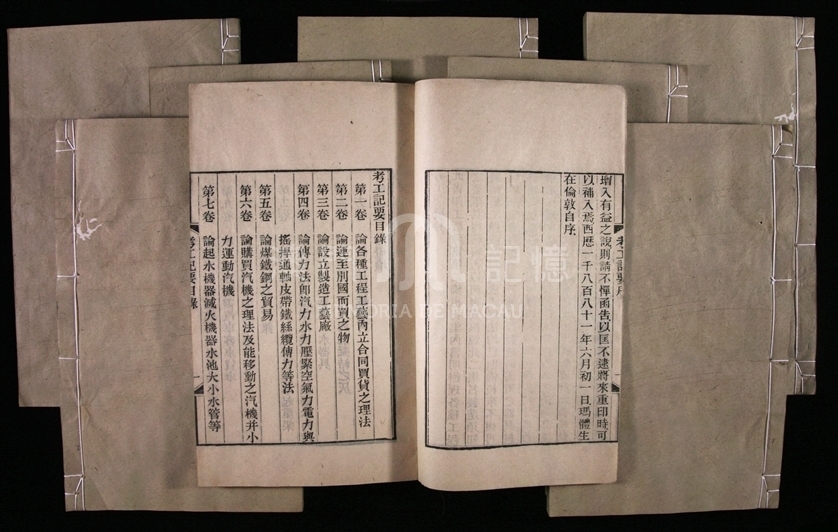 增入有益之說則請不憚函告以匡不逮將來重印時可
以補入焉西歷一千八百八十一年六月初一日瑪體生
在倫敦自序
考工記要序
考工記要目錄
第一卷 論各種工程工藝內立合同買貨之理法
第二卷 論運至別國而賣之物
第三卷 論設立製造工藝廠
第四卷 論傳力法卽汽力水力壓緊空氣力電力與
搖捍通軸皮帶鐵絲纜傳力等法
第五卷 論煤鐵鋼之貿易
第六卷 論購買汽機之理法及能移動之汽機并小
力運動汽機
第七卷 論起水機器滅火機器水池大小水管等
考工記要目錄
一
記憶
MEMORIA DE MACAU